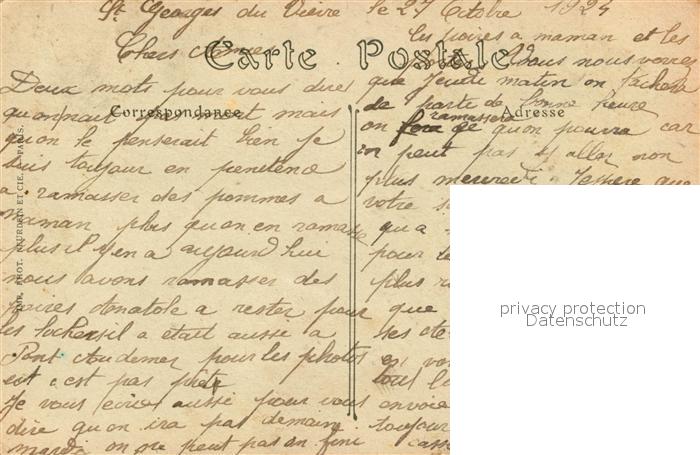 St Georges du Vièvre le 27 Octobre 1924
les poires a maman et les
Chers
Carte Postale
vous nous verrez
Deux mots pour vous dire
que Jeudi matin on tachera
qu on part mais
Correspondance
de parte de bonne heure
Adresse
ramasser
qu on le penserait bien je
on fera ce qu on pourra car
suis toujour en penitence
on peut pas y aller non
a ramasser des pommes a
plus mercredi J espere que
maman plus qu on en ramasse
votre
plus il y en a aujourd hui
qu a
nous avons ramasser des
pour
poires Anatole a rester pour
plus
que
les locher il a etait aussi a
ses
Pont Audemer pour les photos
et vous
est c est pas
tout
Je vous ecrie aussi pour vous
envoie
dire qu on ira pas demain
toujour
mardi on ne peut pas on fini
IMP. PHOT. NEURDEIN ET CIE. PARIS.
privacy protection
Datenschutz